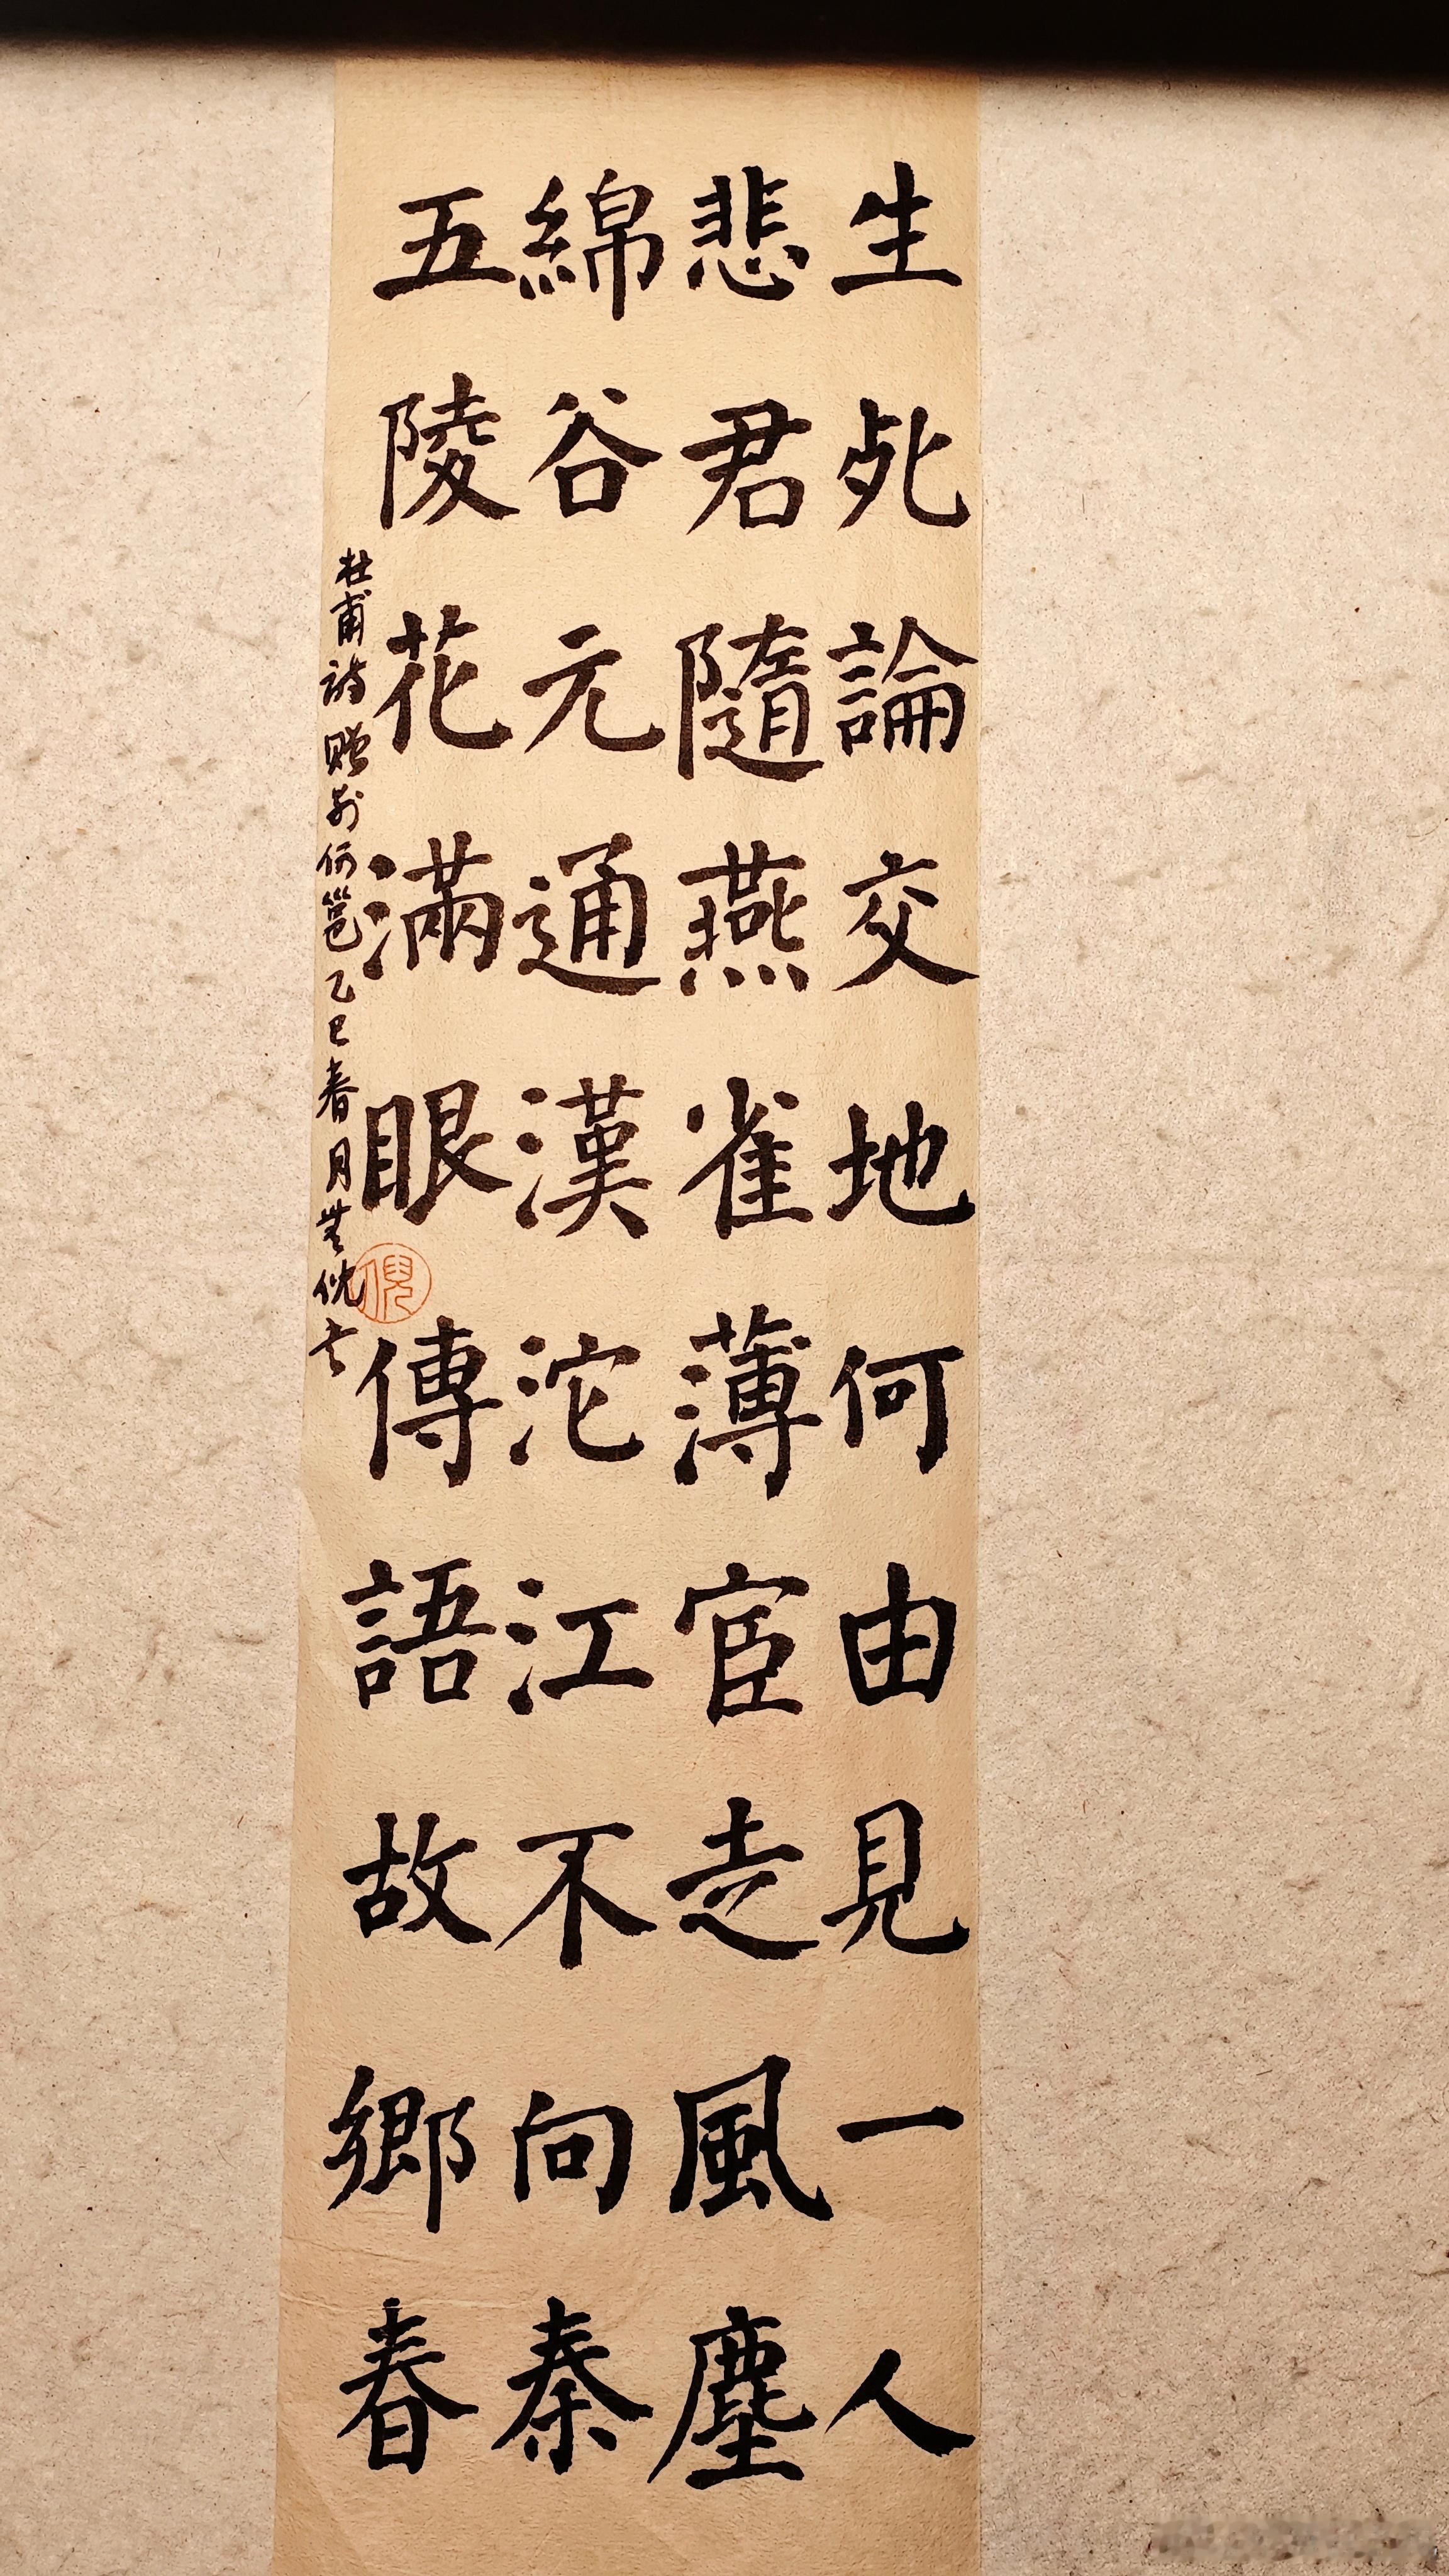 生死論交地何由見一人
悲君隨燕雀薄宦走風塵
綿谷元通漢沱江不向秦
五陵花滿眼傳語故鄉春
杜甫詩贈别何邕乙巳春月無倪书
倪